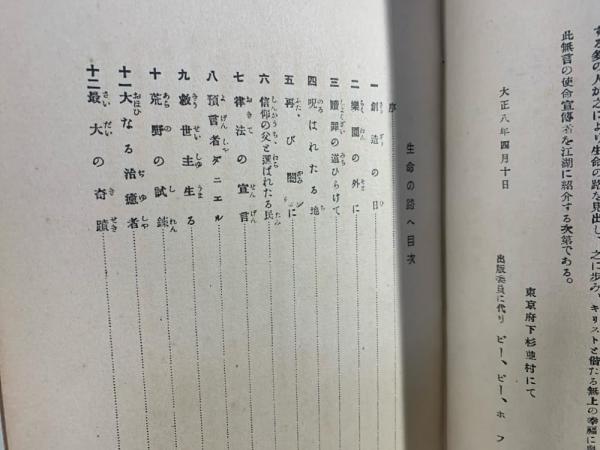 する多の人が之により生命の路を見出し、之に歩み、キリストと偕たる無上の幸福に
此無言の使命宣傳者を江湖に紹介する次第である。
大正八年四月十日
東京府下杉並村にて
出版委員に代り ピー、ピー、ホフ
生命の路へ目次
序
一 創造の日
二 樂園の外に
三 贖罪の道ひらけて
四 呪はれたる地
五 再び闇に
六 信仰の父と選ばれたる民
七 律法の宣言
八 預言者ダニエル
九 救世主生る
十 荒野の試錬
十一 大なる治癒者
十二 最大の奇蹟